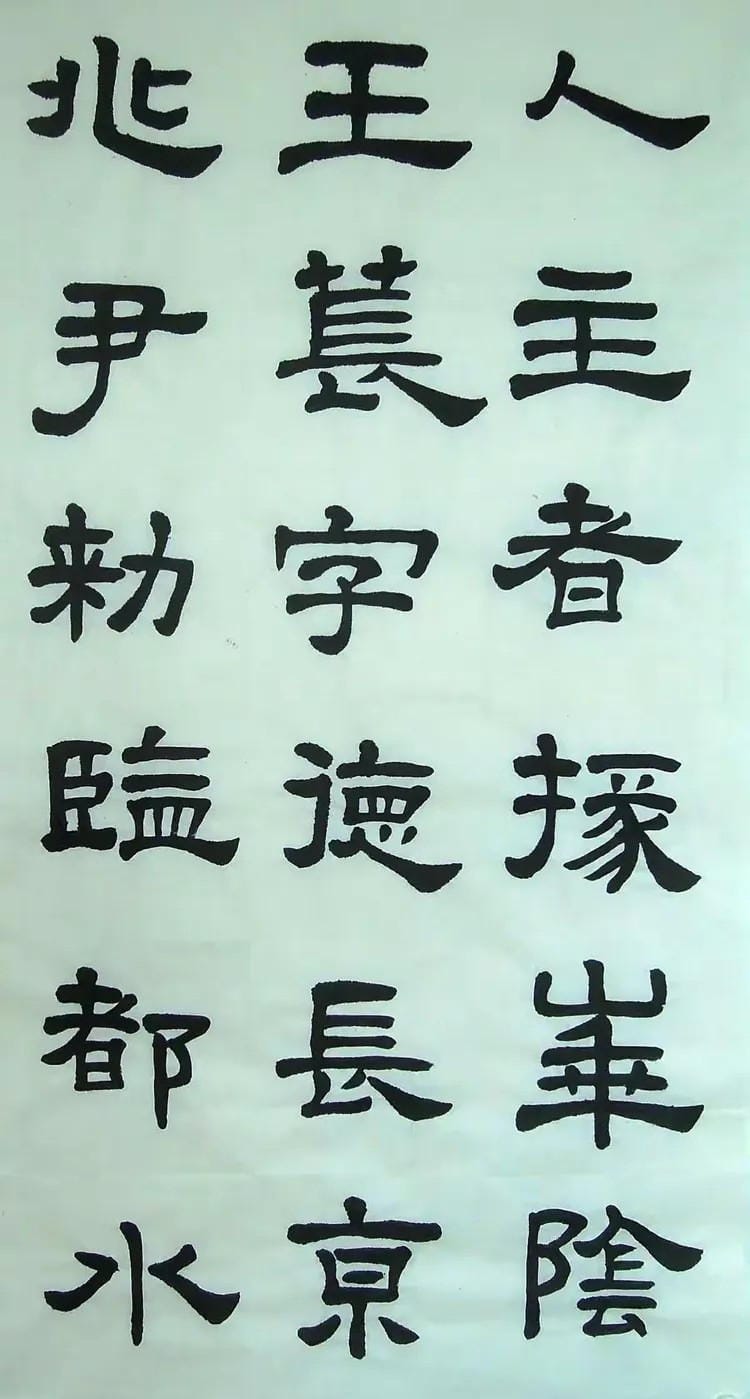 人主者掾華陰
王萇字德長京
兆尹勑臨都水